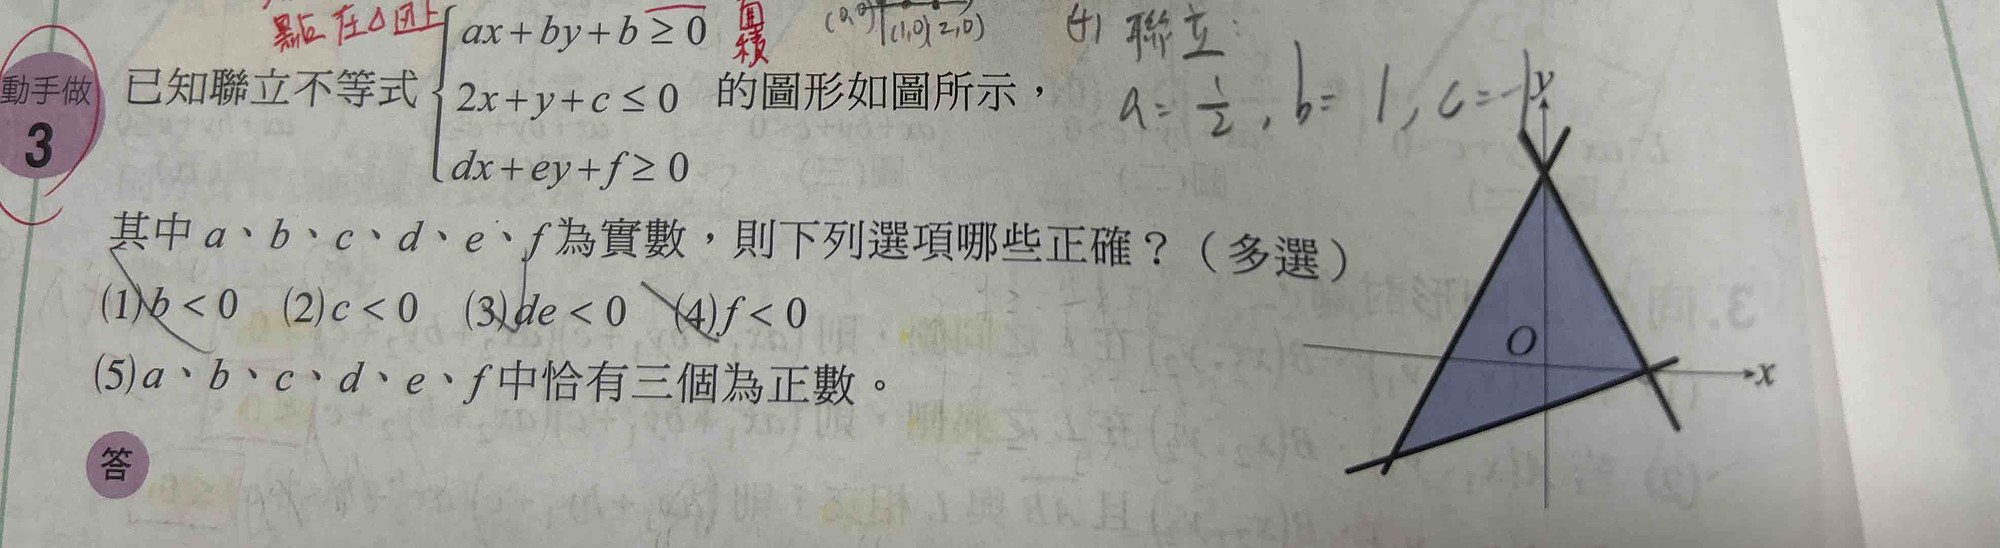 點在△因上
ax+by+b≥0
面積
(0,0) (1,0) (2,0)
(4) 聯立:
動手做
3
已知聯立不等式 2x+y+c≤0 的圖形如圖所示，
a=½, b=1, c=-1
dx+ey+f≥0
其中 a、b、c、d、e、f 為實數，則下列選項哪些正確？（多選）
(1) b<0 (2) c<0 (3) de<0 (4) f<0
(5) a、b、c、d、e、f 中恰有三個為正數。
答
y
O
x